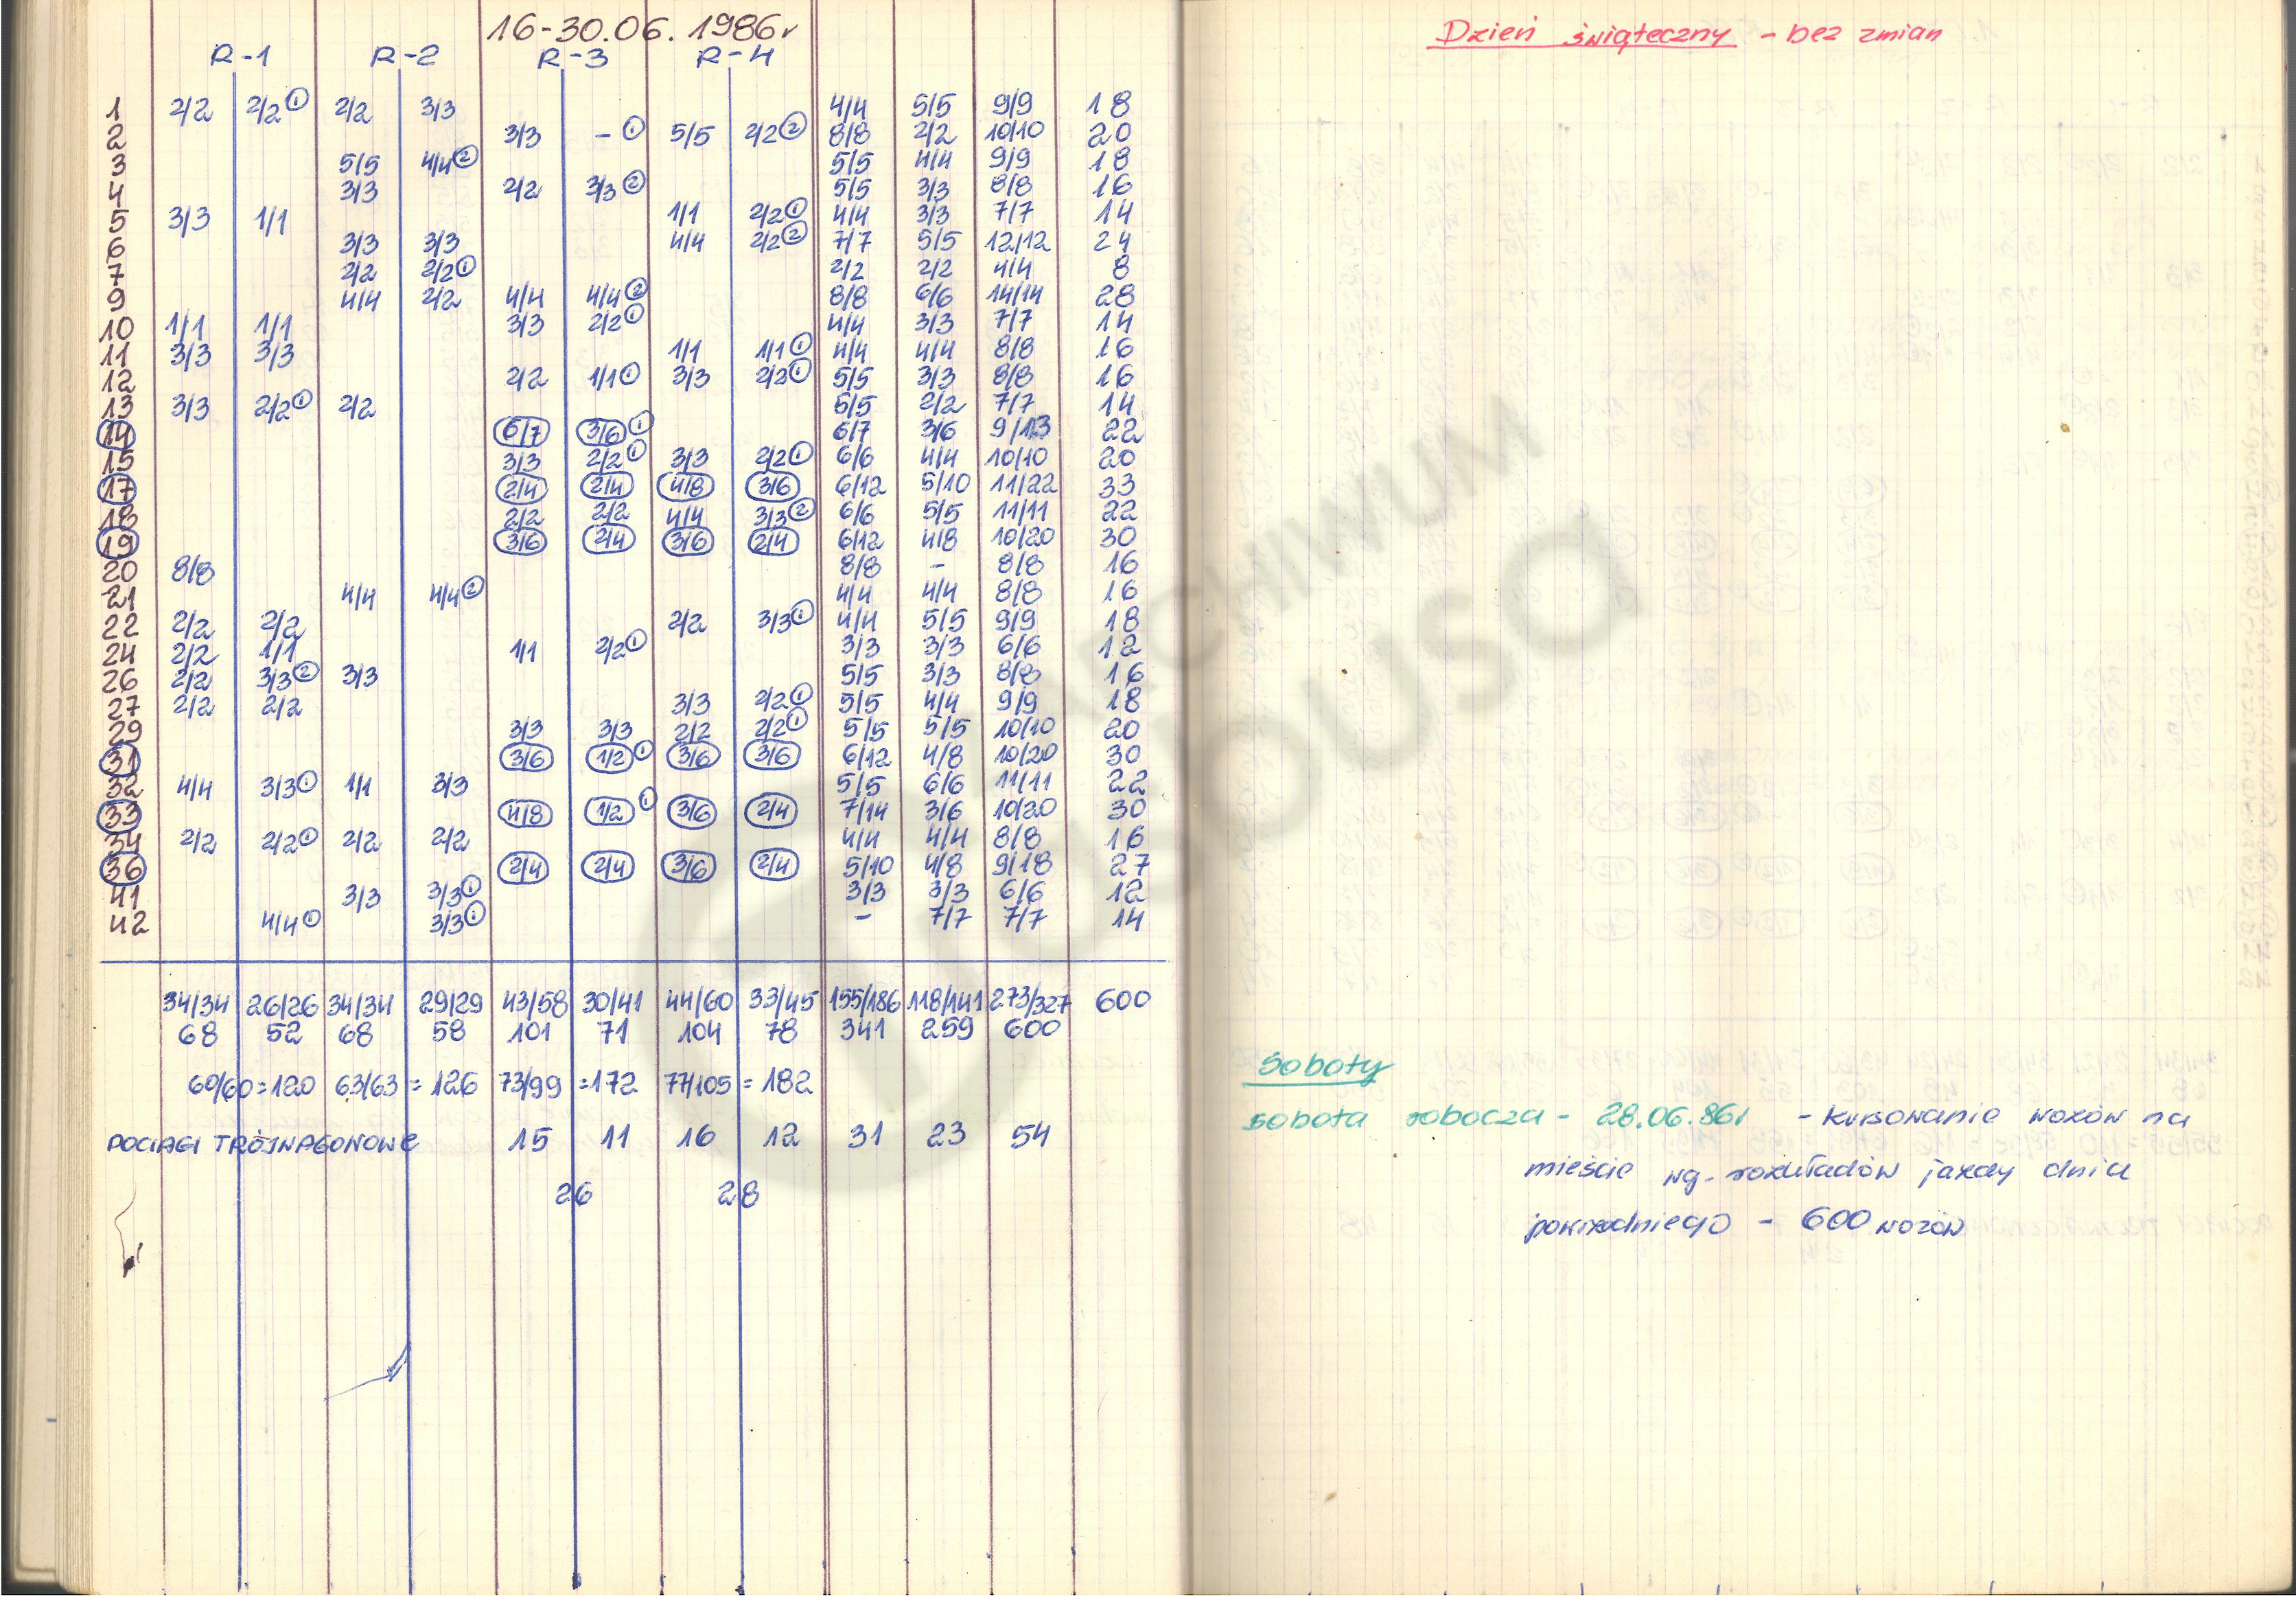 16-30.06.1986r
R-1 R-2 R-3 R-4
1 2/2 2/2 ① 2/2 3/3 4/4 5/5 9/9 18
2 3/3 - ① 5/5 2/2 ② 8/8 2/2 10/10 20
3 5/5 4/4 ② 5/5 4/4 9/9 18
4 3/3 2/2 3/3 ② 5/5 3/3 8/8 16
5 3/3 1/1 1/1 2/2 ① 4/4 3/3 7/7 14
6 3/3 3/3 4/4 2/2 ② 7/7 5/5 12/12 24
7 2/2 2/2 ① 2/2 2/2 4/4 8
9 4/4 2/2 4/4 4/4 ② 8/8 6/6 14/14 28
10 1/1 1/1 3/3 2/2 ① 4/4 3/3 7/7 14
11 3/3 3/3 1/1 1/1 ① 4/4 4/4 8/8 16
12 2/2 1/1 ① 3/3 2/2 ① 5/5 3/3 8/8 16
13 3/3 2/2 ① 2/2 5/5 2/2 7/7 14
14 6/7 3/6 ① 6/7 3/6 9/13 22
15 3/3 2/2 ① 3/3 2/2 ① 6/6 4/4 10/10 20
17 2/4 2/4 4/8 3/6 6/12 5/10 11/22 33
18 2/2 2/2 4/4 3/3 ② 6/6 5/5 11/11 22
19 3/6 2/4 3/6 2/4 6/12 4/8 10/20 30
20 8/8 8/8 - 8/8 16
21 4/4 4/4 ② 4/4 4/4 8/8 16
22 2/2 2/2 2/2 3/3 ① 4/4 5/5 9/9 18
24 2/2 1/1 1/1 2/2 ① 3/3 3/3 6/6 12
26 2/2 3/3 ② 3/3 5/5 3/3 8/8 16
27 2/2 2/2 3/3 2/2 ① 5/5 4/4 9/9 18
29 3/3 3/3 2/2 2/2 ① 5/5 5/5 10/10 20
31 3/6 1/2 ① 3/6 3/6 6/12 4/8 10/20 30
32 4/4 3/3 ① 1/1 3/3 5/5 6/6 11/11 22
33 4/8 1/2 ① 3/6 2/4 7/14 3/6 10/20 30
34 2/2 2/2 ① 2/2 2/2 4/4 4/4 8/8 16
36 2/4 2/4 3/6 2/4 5/10 4/8 9/18 27
41 3/3 3/3 ① 3/3 3/3 6/6 12
42 4/4 ① 3/3 ① - 7/7 7/7 14
34/34 26/26 34/34 29/29 43/58 30/41 44/60 33/45 155/186 118/141 273/327 600
68 52 68 58 101 71 104 78 341 259 600
60/60=120 63/63=126 73/99=172 77/105=182
POCIĄGI TRÓJWAGONOWE 15 11 16 12 31 23 54
26 28
Dzień świąteczny - bez zmian
Soboty
sobota robocza - 28.06.86r - kursowanie wozów na
mieście wg. rozkładów jazdy dnia
powszedniego - 600 wozów
ARCHIWUM